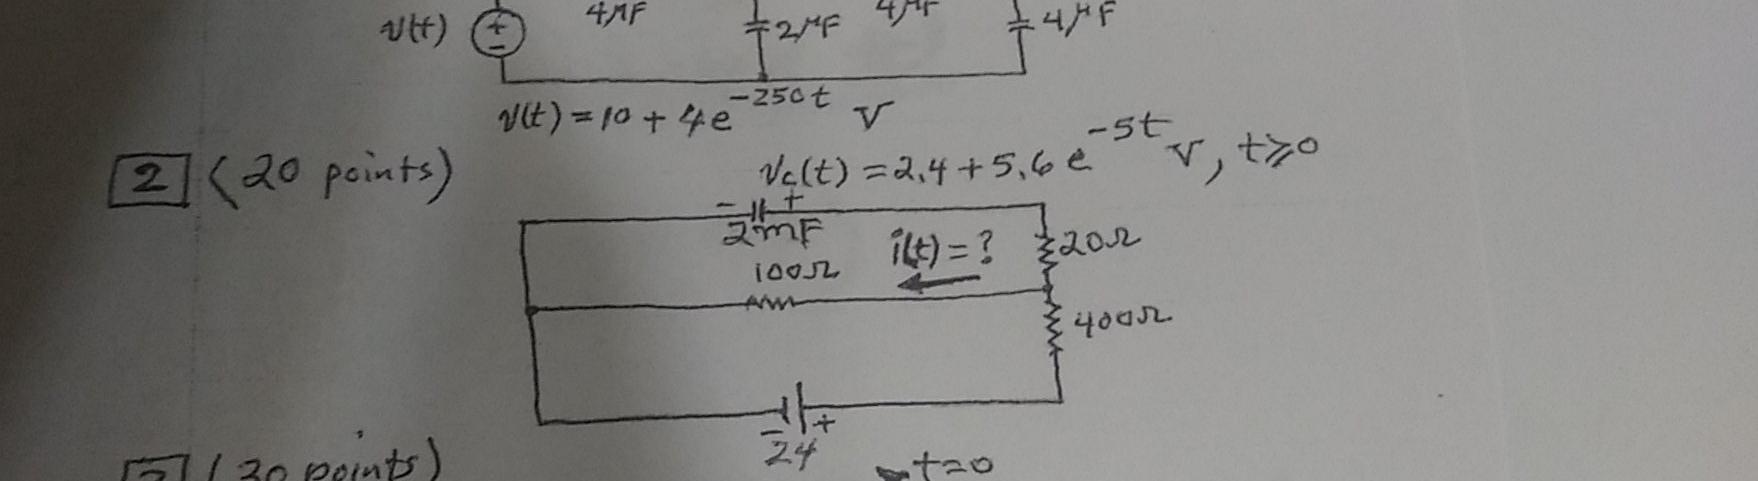 v(t) + - 4μF 2μF 4μF 4μF
v(t) = 10 + 4e^-250t V
2 (20 points) vc(t) = 2.4 + 5.6 e^-5t V, t≥0
- +
2mF i(t) = ? 20Ω
100Ω
400Ω
- +
24
(30 points) t=0